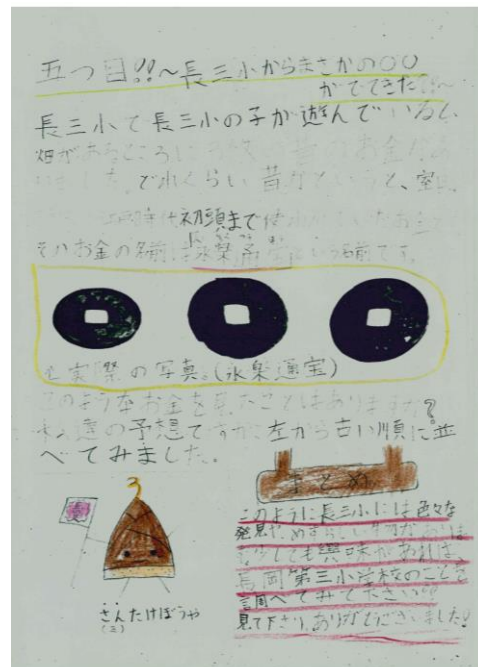 五つ目!!～長三小からまさかの○○
がでてきた!?～
長三小で長三小の子が遊んでいると、
畑があるところに お金
どれくらい昔かというと、室
時代初頭まで使
そのお金の名前は永楽通宝という名前です。
実際の写真。(永楽通宝)
このようなお金を見たことはありますか?
私達の予想ですが、左から古い順に並
べてみました。
さんたけぼうや
(三)
まとめ
このように長三小には色々な
発見や、めずらしい
少しでも興味があれば、
長岡第三小学校のことを
調べてみて下さい!!
見て下さり、ありがとうございました!